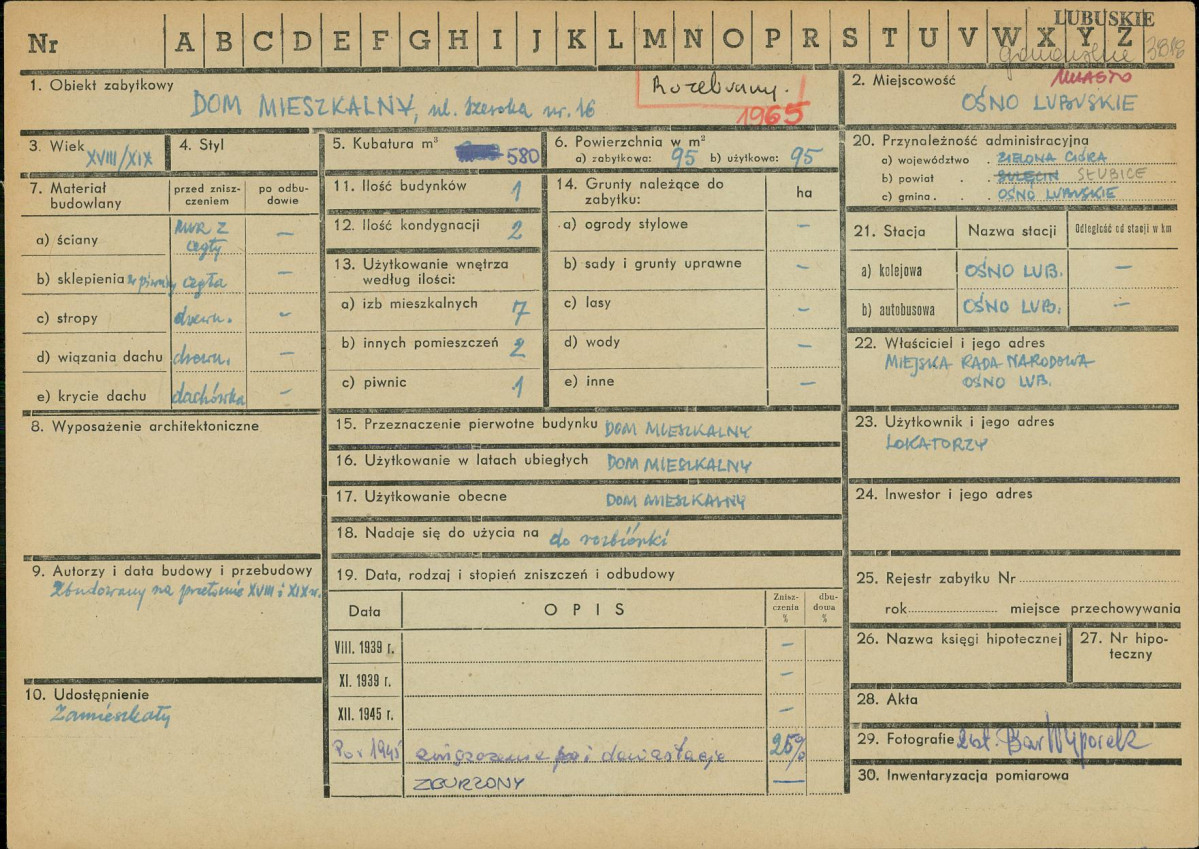 Nr A B C D E F G H I J K L M N O P R S T U V W X Y Z
LUBUSKIE
1. Obiekt zabytkowy
DOM MIESZKALNY, ul. Szeroka nr. 16
Rozebrany.
1965
2. Miejscowość MIASTO
OŚNO LUBUSKIE
3. Wiek XVIII/XIX
4. Styl
5. Kubatura m³ 580
6. Powierzchnia w m²
a) zabytkowa: 95 b) użytkowa: 95
7. Materiał budowlany
przed zniszczeniem
po odbudowie
a) ściany mur z cegły —
b) sklepienia w piwnicy cegła —
c) stropy drewn. —
d) wiązania dachu drewn. —
e) krycie dachu dachówka —
8. Wyposażenie architektoniczne
9. Autorzy i data budowy i przebudowy
Zbudowany na przełomie XVIII i XIX w.
10. Udostępnienie
Zamieszkały
11. Ilość budynków 1
12. Ilość kondygnacji 2
13. Użytkowanie wnętrza
według ilości:
a) izb mieszkalnych 7
b) innych pomieszczeń 2
c) piwnic 1
14. Grunty należące do
zabytku: ha
a) ogrody stylowe —
b) sady i grunty uprawne —
c) lasy —
d) wody —
e) inne —
15. Przeznaczenie pierwotne budynku DOM MIESZKALNY
16. Użytkowanie w latach ubiegłych DOM MIESZKALNY
17. Użytkowanie obecne DOM MIESZKALNY
18. Nadaje się do użycia na do rozbiórki
19. Data, rodzaj i stopień zniszczeń i odbudowy
Data OPIS Zniszczenia % dbudowa %
VIII. 1939 r. —
XI. 1939 r. —
XII. 1945 r. —
Po r 1945 zniszczenie i dewastacje 25%
ZBURZONY —
20. Przynależność administracyjna
a) województwo . ZIELONA GÓRA
b) powiat . . SULĘCIN SŁUBICE
c) gmina . . OŚNO LUBUSKIE
21. Stacja Nazwa stacji Odległość od stacji w km
a) kolejowa OŚNO LUB. —
b) autobusowa OŚNO LUB. —
22. Właściciel i jego adres
MIEJSKA RADA NARODOWA
OŚNO LUB.
23. Użytkownik i jego adres
LOKATORZY
24. Inwestor i jego adres
25. Rejestr zabytku Nr
rok miejsce przechowywania
26. Nazwa księgi hipotecznej
27. Nr hipoteczny
28. Akta
29. Fotografie
30. Inwentaryzacja pomiarowa